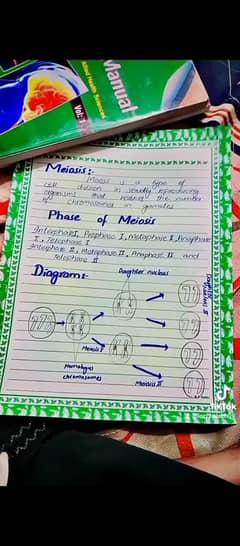 Manual
Allied Health Sciences
Vol: 1
Meiosis:-
Meiosis is a type of
cell division in sexually reproducing
organisms that reduces the number
of chromosomes in gametes
Phase of Meiosis
Interphase I, Prophase I, Metaphase I, Anaphase
I, Telophase I
Interphase II, Metaphase II, Anaphase II and
Telophase II
Diagram:-
Daughter nucleus
Meiosis I
Homologus
chromosomes
Meiosis II
TikTok